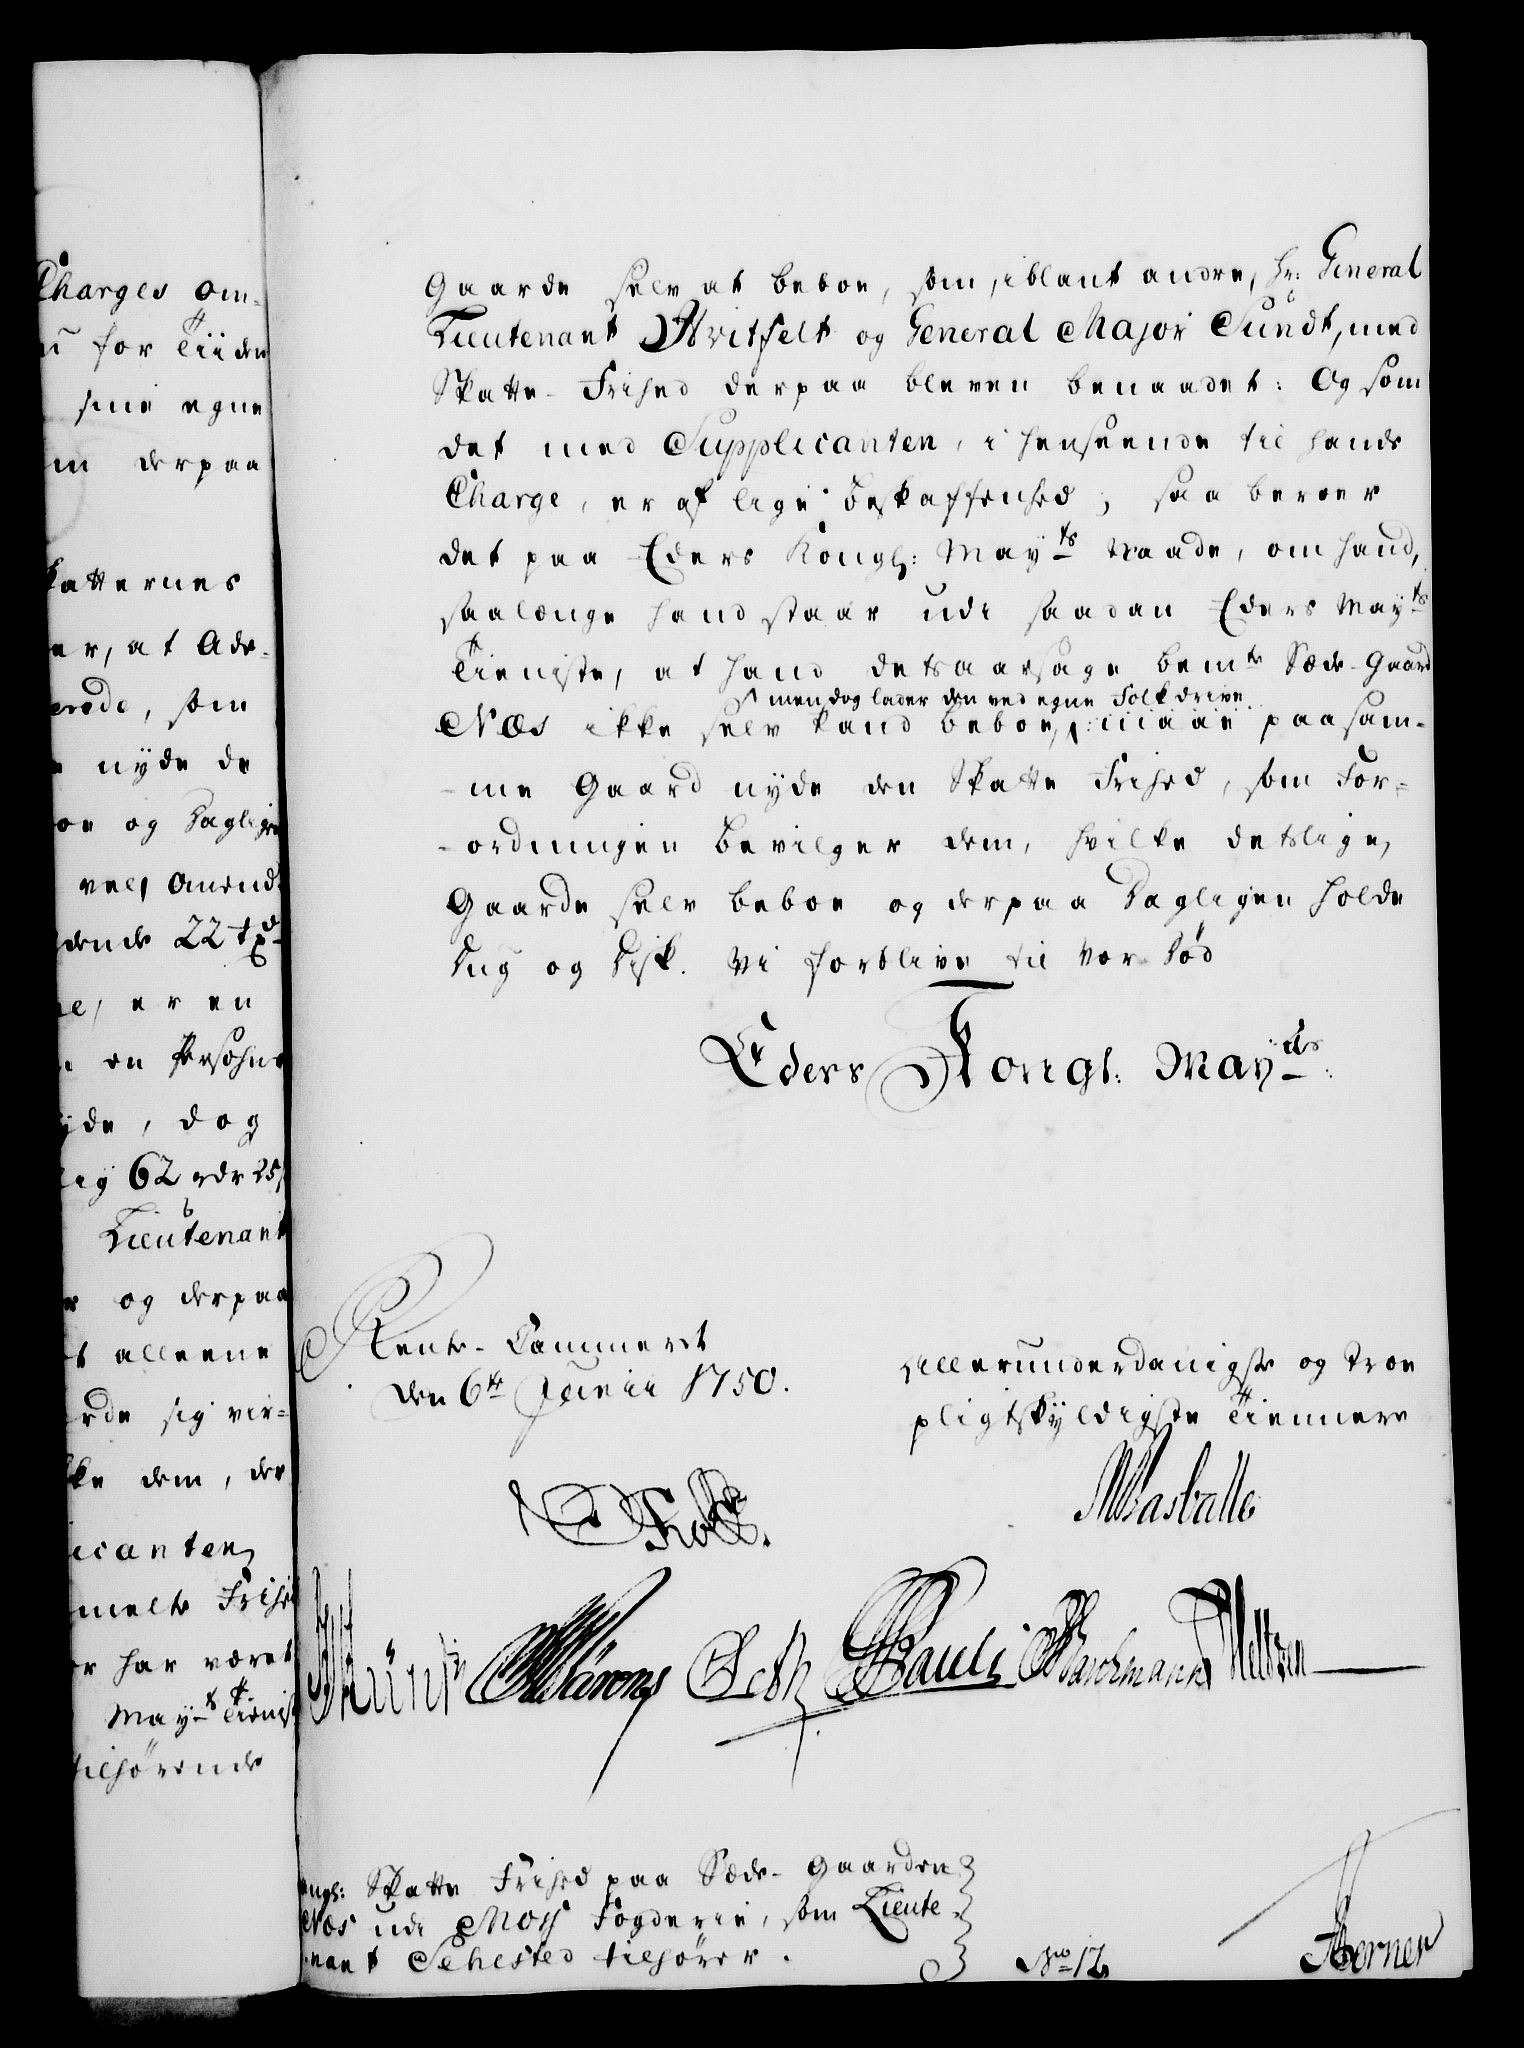 Charges om-
for Tiiden
sine egne
derpaa
katternes
er, at Ade-
som
nyde de
og Dagligen
vel, anende
22
er en
en Persohns
yde, dog
62 rdr 25
Lieutenant
og derpaa
alleene
sig vir-
ke dem, der
icanten,
melte Frihed
har været
Mayts Tienist
tilhørende
Gaarde selv at beboe, som, iblant andre, Hr: General
Lieutenant Hvitfelt og General Major Sundt, med
Skatte-Frihed derpaa bleven benaadet: Og som
det med Supplicanten, i henseende til hands
Charge, er af lige beskaffenhed; saa beroer
det paa Eders Kongl: Mayts Naade, om hand,
saalænge hand staar udi saadan Eders Mayts
Tieniste, at hand detsaarsage bemte Sæde-Gaard
men dog lader den ved egne Folk drive
Næs ikke selv kand beboe, maae paa sam-
-me Gaard nyde den Skatte Frihed, som For-
-ordningen bevilger dem, hvilke detslige,
Gaarde selv beboe og derpaa Dagligen holde
Dug og Disk. Vi forblive til vor Død
Eders Kongl: Mayts:
Rente-Cammeret
den 6te Junii 1750.
Allerunderdanigste og troe
pligtskyldigste Tiennere
Holck.
Pauli
Seth
ngl: Skatte Frihed paa Sæde-Gaarden
Næs udi Moss Fogderie, som Lieute-
-nant Sehested tilhører.
No 12
Berner